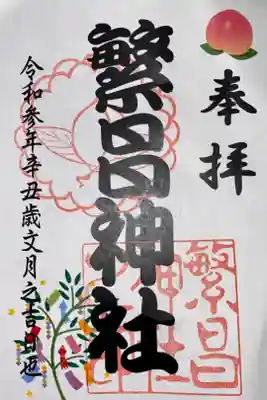 奉拝
繁昌神社
繁昌
神社
令和参年辛丑歳文月之吉日也